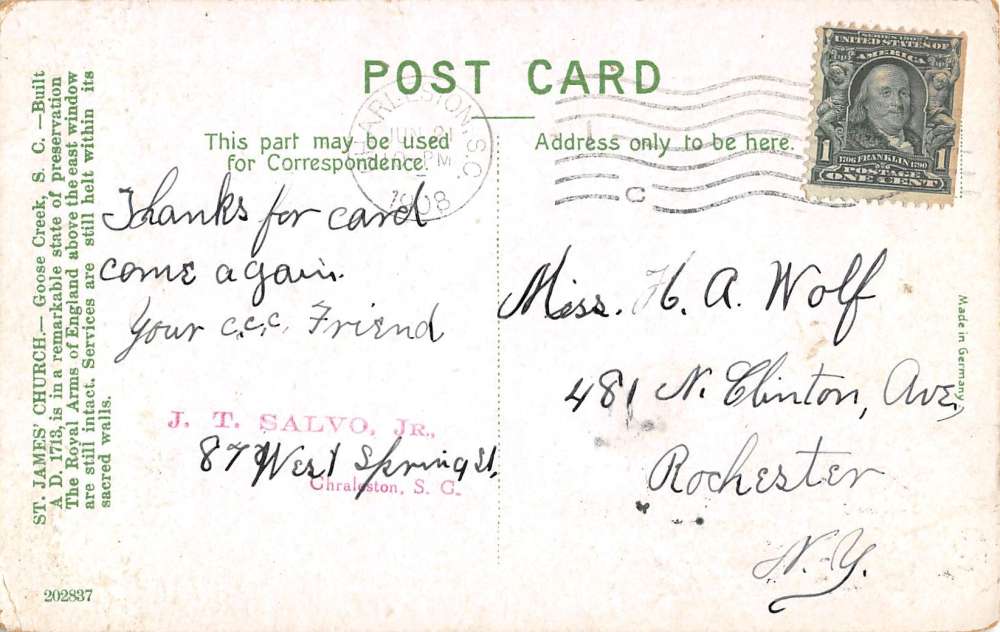 POST CARD
This part may be used
for Correspondence.
Address only to be here.
CHARLESTON, S.C.
JUN 21
PM
1908
SERIES 1902
UNITED STATES OF
AMERICA
1 1706 FRANKLIN 1790 1
POSTAGE
ONE CENT
C
ST. JAMES' CHURCH.— Goose Creek, S. C. —Built
A D. 1713, is in a remarkable state of preservation
The Royal Arms of England above the east window
are still intact. Services are still helt within its
sacred walls.
202837
Thanks for card
come again.
Your c.c.c. Friend
J. T. SALVO, JR.,
87 West Spring St,
Chraleston, S. C.
Miss. H. A. Wolf
481 N. Clinton, Ave,
Rochester
N.Y.
Made in Germany